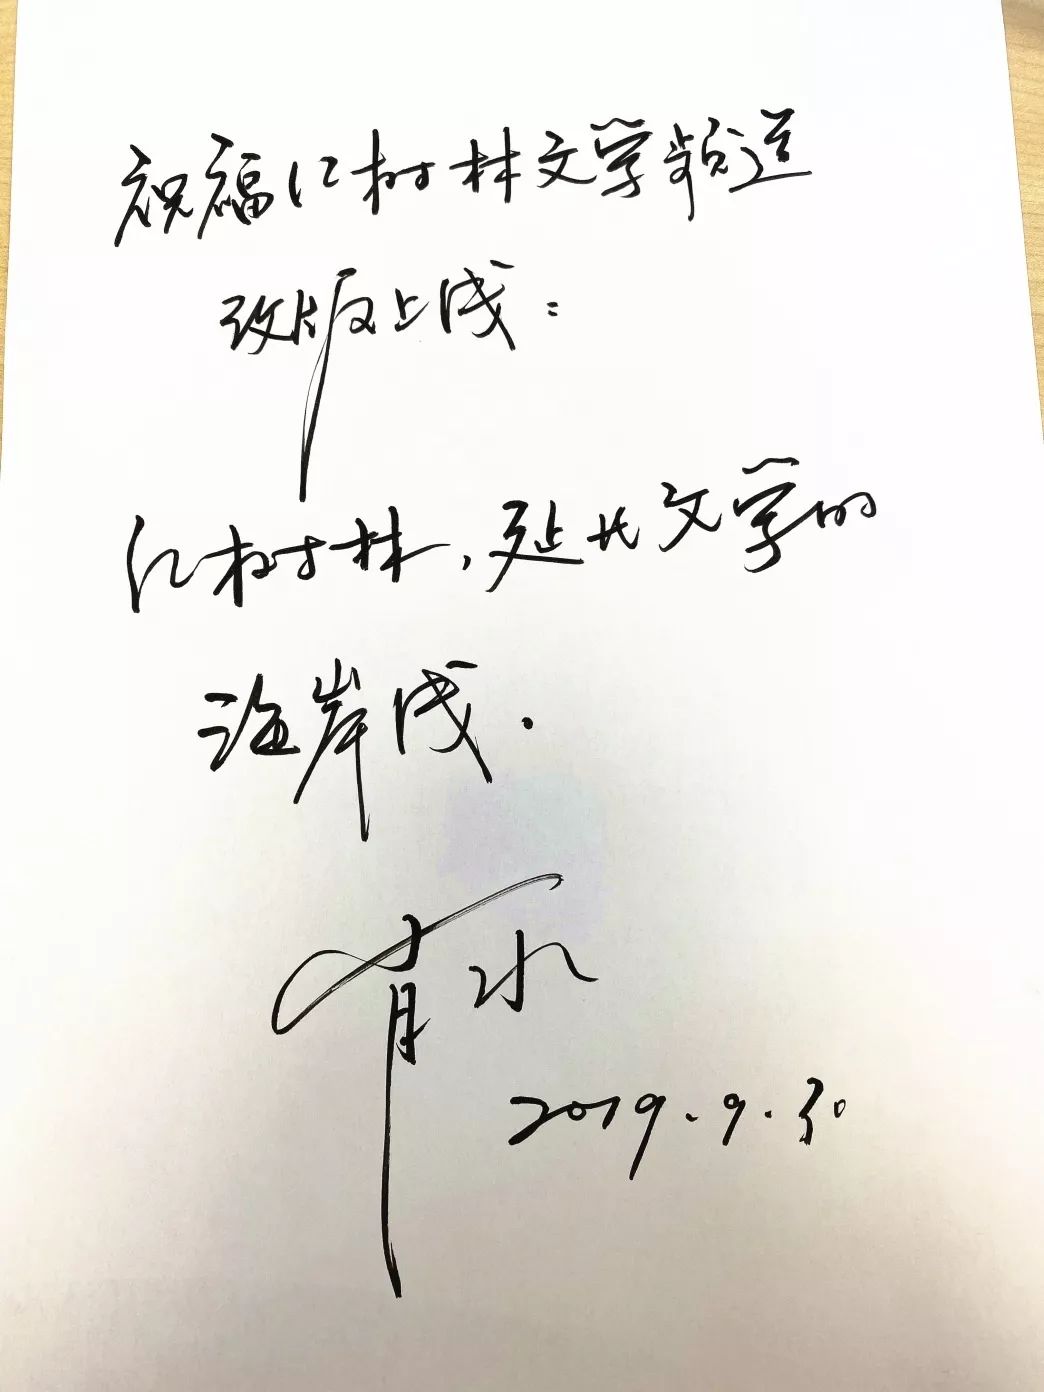 祝福红树林文学频道
改版上线:
红树林,延长文学的
海岸线.
肖水
2019.9.30